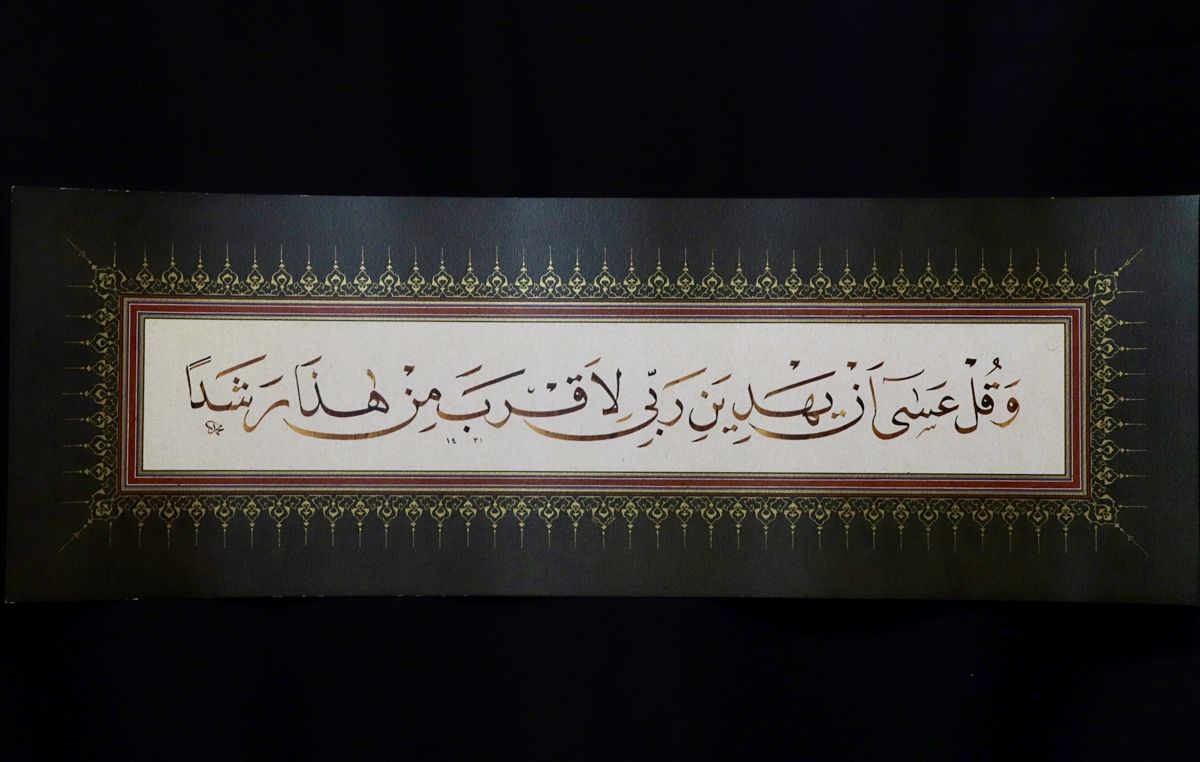 وَقُلْ عَسٰٓى اَنْ يَهْدِيَنِ رَبّ۪ي لِاَقْرَبَ مِنْ هٰذَا رَشَدًا
١٤٣١